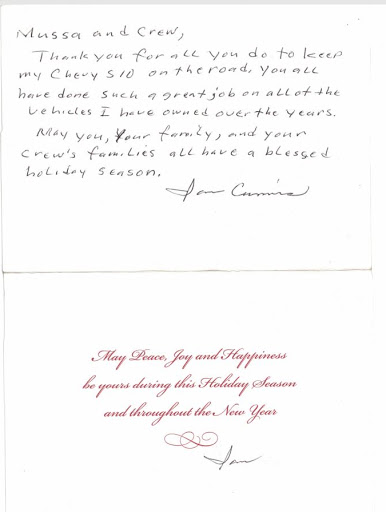 Mussa and Crew,
Thank you for all you do to keep
my Chevy S10 on the road. You all
have done such a great job on all of the
vehicles I have owned over the years.
May you, your family, and your
crew's families all have a blessed
holiday season.
May Peace, Joy and Happiness
be yours during this Holiday Season
and throughout the New Year